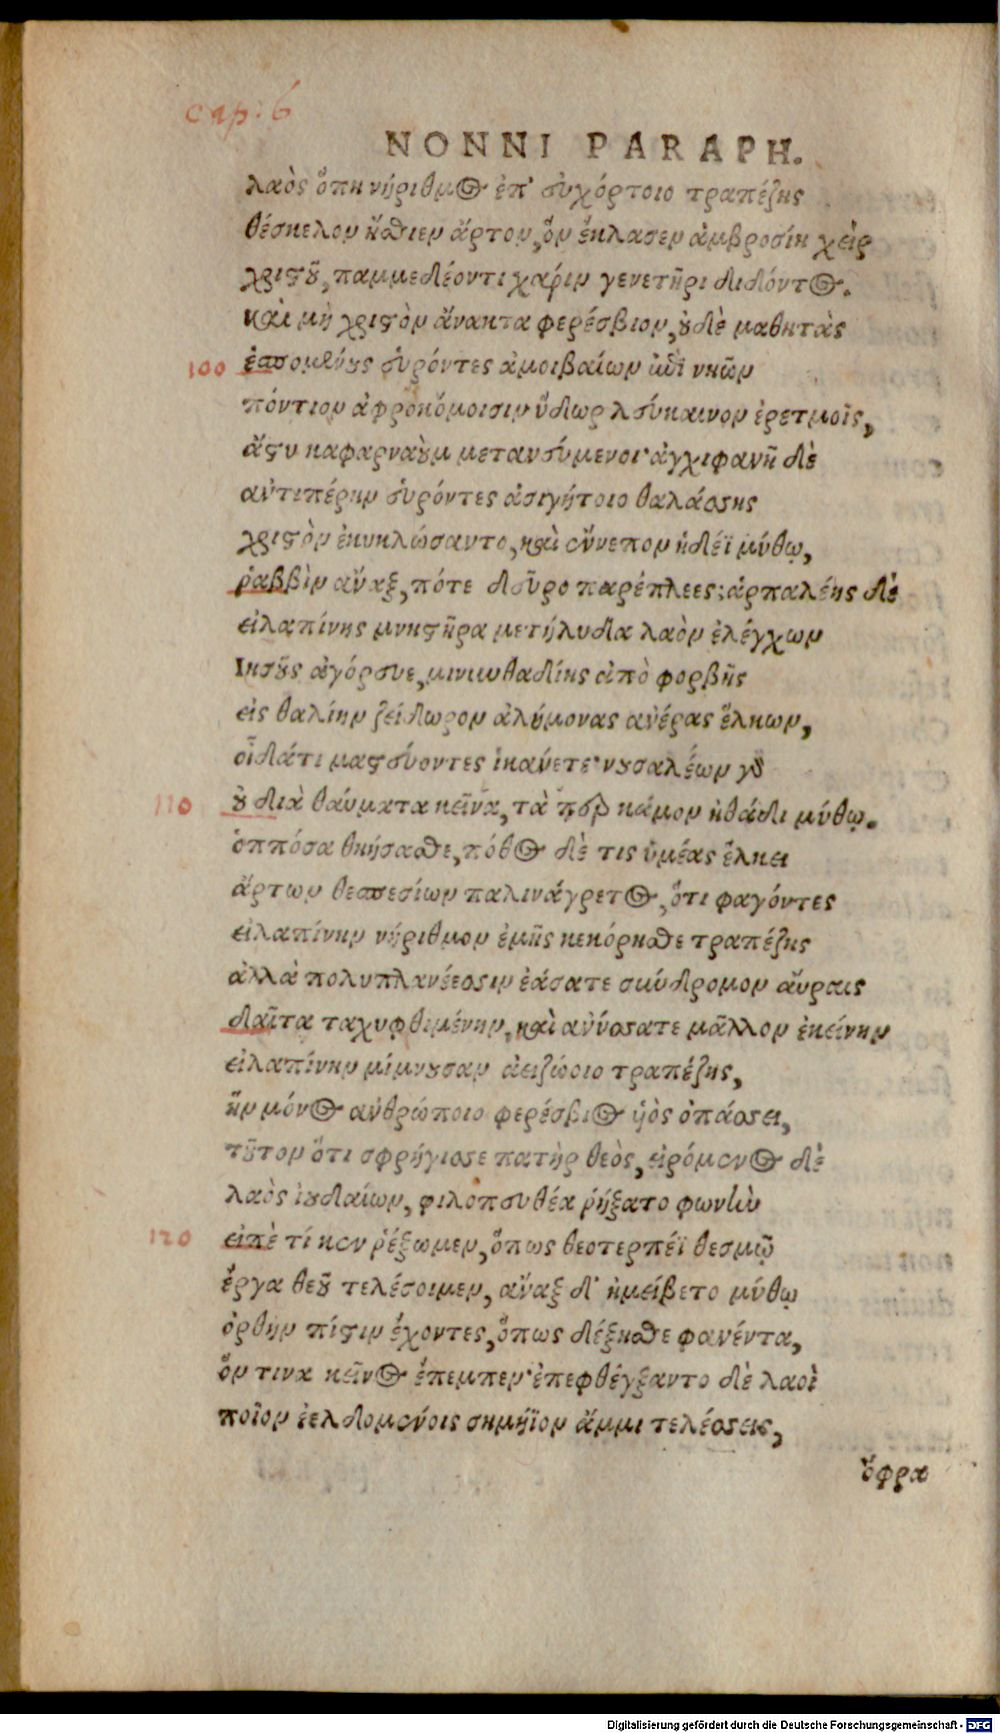 cap: 6
NONNI PARAPH.
λαὸς ὅπη νήριθμος ἐπ' εὐχόρτοιο τραπέζης
θέσκελον ἤσθιεν ἄρτον, ὃν ἔκλασεν ἀμβροσίη χεὶρ
χριστοῦ, παμμεδέοντι χάριν γενετῆρι διδόντος.
καὶ μὴ χριστὸν ἄνακτα φερέσβιον, οὐδὲ μαθητὰς
100 ἑσπομένους εὑρόντες ἀμοιβαίων ἐπὶ νηῶν
πόντιον ἀφροκόμοισιν ὕδωρ λεύκαινον ἐρετμοῖς,
ἄστυ καφαρναοὺμ μετανεύμενοι· ἀγχιφανῆ δὲ
αὐτιπέρην εὑρόντες ἀσιγήτοιο θαλάσσης
χριστὸν ἐκυκλώσαντο, καὶ ἔννεπον ἡδέϊ μύθῳ,
ῥαββὶν ἄναξ, πότε δεῦρο παρέπλεες; ἁρπαλέης δὲ
εἰλαπίνης μνηστῆρα μετήλυδα λαὸν ἐλέγχων
Ἰησοῦς ἀγόρευε, μινυνθαδίης ἀπὸ φορβῆς
εἰς θαλίην ζείδωρον ἀλήμονας ἀνέρας ἕλκων,
οἶδά τι μαστεύοντες ἱκάνετε· νυσαλέων γὸ
110 οὐ διὰ θαύματα κεῖνα, τὰ περ κάμον ἠθάδι μύθῳ.
ὁππόσα θηήσασθε, πόθος δέ τις ὑμέας ἕλκει
ἄρτων θεσπεσίων παλινάγρετος, ὅτι φαγόντες
εἰλαπίνην νήριθμον ἐμῆς κεκόρησθε τραπέζης
ἀλλὰ πολυπλανέεσσιν ἐάσατε σύνδρομον αὔραις
δαῖτα ταχυφθιμένην, καὶ ἀνύσσατε μᾶλλον ἐκείνην
εἰλαπίνην μίμνουσαν ἀειζώοιο τραπέζης,
ἣν μόνος ἀνθρώποιο φερέσβιος υἱὸς ὀπάσσει,
τοῦτον ὅτι σφρήγισσε πατὴρ θεὸς, εἰρόμενος δὲ
λαὸς ἰουδαίων, φιλοπευθέα ῥήξατο φωνὴν
120 εἰπὲ τί κεν ῥέξωμεν, ὅπως θεοτερπέϊ θεσμῷ
ἔργα θεοῦ τελέσοιμεν, ἄναξ δ' ἠμείβετο μύθῳ
ὀρθὴν πίστιν ἔχοντες, ὅπως δέξησθε φανέντα,
ὅν τινα κεῖνος ἔπεμπεν· ἐπεφθέγξαντο δὲ λαοὶ
ποῖον ἐελδομένοις σημήϊον ἄμμι τελέσσεις,
ὄφρα
Digitalisierung gefördert durch die Deutsche Forschungsgemeinschaft - DFG